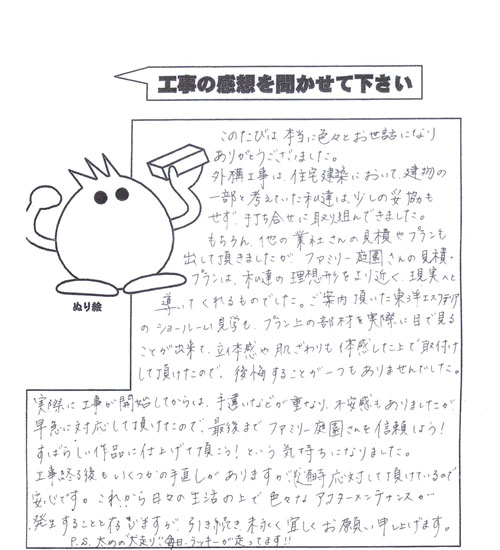 工事の感想を聞かせて下さい
このたびは本当に色々とお世話になり
ありがとうございました。
外構工事は、住宅建築において、建物の
一部と考えていた私達は、少しの妥協も
せず、打ち合せに取り組んできました。
もちろん、他の業社さんの見積やプランも
出して頂きましたが、ファミリー庭園さんの見積・
プランは、私達の理想形をより近く、現実へと
導いてくれるものでした。ご案内頂いた東洋エクステリア
のショールーム見学も、プラン上の部材を実際に目で見る
ことが出来て、立体感や肌ざわりも体感した上で取付け
して頂けたので、後悔することが一つもありませんでした。
ぬり絵
実際に工事が開始してからは、手違いなどが重なり、不安感もありましたが
早急に対応して頂けたので、最後までファミリー庭園さんを信頼しよう!
すばらしい作品に仕上げて頂こう!という気持ちになりました。
工事終る後もいくつかの手直しがありますが、応対して頂けているので
安心です。これから日々の生活の上で色々なアフターメンテナンスが
発生することと存じますが、引き続き末永く宜しくお願い申し上げます。
P.S. 太めの"犬走り"毎日、ラッキーが走ってます!!